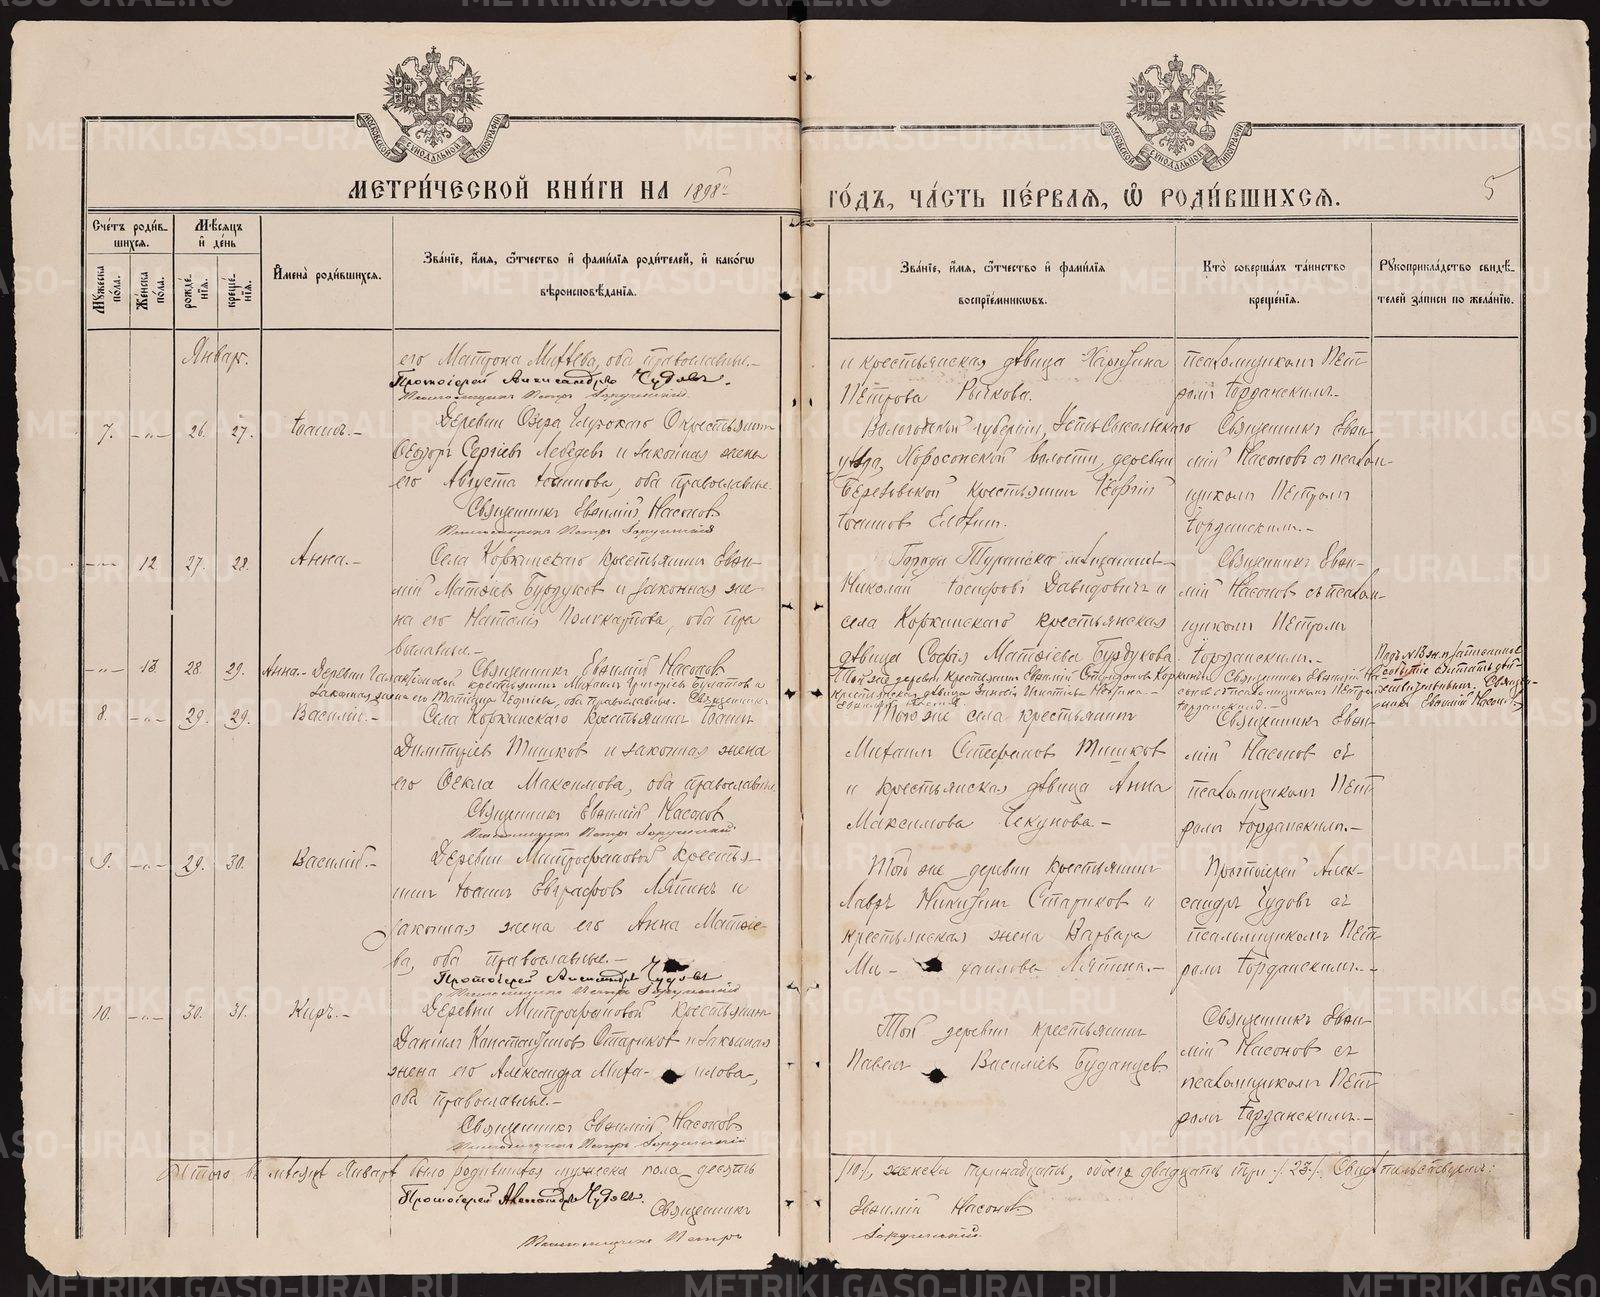 МЕТРИ́ЧЕСКОЙ КНИ́ГИ НА 1898й ГО́ДЪ, ЧА́СТЬ ПЕ́РВАЯ, Ѽ РОДИ́ВШИХСЯ.
5
МОСКОВСКОЙ СѴНОДАЛЬНОЙ ТИПОГРАФІИ
МОСКОВСКОЙ СѴНОДАЛЬНОЙ ТИПОГРАФІИ
Сче́тъ роди́в-
шихся.
Мѣ́сяцъ
и҆ де́нь
Мꙋ́жеска по́ла.
Же́нска по́ла.
рожде́-
нїя.
креще́-
нїя.
И҆мена̀ роди́вшихся.
Зва́нїе, и҆́мя, ѻ҆́тчество и҆ фами́лїя роди́телей, и҆ како́гѡ
вѣроисповѣ́данїя.
Зва́нїе, и҆́мя, ѻ҆́тчество и҆ фами́лїя
воспрїе́мниковъ.
Кто̀ соверша́лъ та́инство
креще́нїя.
Рꙋкоприкла́дство свидѣ́-
телей за́писи по жела́нїю.
Январь.
его Матрона Матѳѣева, оба православные.-
Протоіерей Александръ Чудовъ.
Псаломщикъ Петръ Іорданскій.
и крестьянская дѣвица
Петрова Рычкова.
псаломщикомъ Пет-
ромъ Іорданскимъ.-
7. -"- 26. 27. Іоаннъ.-
Деревни Озера Глухаго крестьянинъ
Ѳеодоръ Сергіевъ Лебедевъ и законная жена
его Августа Іоаннова, оба православные.
Священникъ Евѳимій Насоновъ
Псаломщикъ Петръ Іорданскій
Вологодской губерніи, Устьсысольскаго
уѣзда, волости, деревни
Березовской крестьянинъ Георгій
Іоанновъ
Священникъ Евѳи-
мій Насоновъ съ псалом-
щикомъ Петромъ
Іорданскимъ.-
-"- 12. 27. 28. Анна.-
Села Коркинскаго крестьянинъ Евѳи-
мій Матѳіевъ Бурдуковъ и законная же-
на его Наталія Поликарпова, оба пра-
вославные.-
Священникъ Евѳимій Насоновъ.
Города Туринска мѣщанинъ
Николай Іосифовъ Давидовичъ и
села Коркинскаго крестьянская
дѣвица Софія Матѳіева Бурдукова.
Священникъ Евѳи-
мій Насоновъ съ псалом-
щикомъ Петромъ
Іорданскимъ.-
-"- 13. 28. 29. Анна.- Деревни Галактіоновой
крестьянинъ Михаилъ Григоріевъ Булатовъ и
законная жена его Татіана Георгіева, оба православные. Священникъ
Евѳимій Насоновъ.
Той же деревни крестьянинъ Евѳимій
крестьянская дѣвица
Священникъ Евѳимій На-
соновъ съ псаломщикомъ Петромъ
Іорданскимъ.-
8. -"- 29. 29. Василій.-
Села Коркинскаго крестьянинъ Іоаннъ
Димитріевъ Тишковъ и законная жена
его Ѳекла Максимова, оба православные.
Священникъ Евѳимій Насоновъ
Псаломщикъ Петръ Іорданскій.
Того же села крестьянинъ
Михаилъ Стефановъ Тишковъ
и крестьянская дѣвица Анна
Максимова Чекунова.-
Священникъ Евѳи-
мій Насоновъ съ
псаломщикомъ Пет-
ромъ Іорданскимъ.-
9. -"- 29. 30. Василій.-
Деревни Митрофановой крестья-
нинъ Іоаннъ Евграфовъ Ляпинъ и
законная жена его Анна Матѳіе-
ва, оба православные.-
Протоіерей Александръ Чудовъ
Псаломщикъ Петръ Іорданскій
Той же деревни крестьянинъ
Лавръ Никитинъ Стариковъ и
крестьянская жена Варвара
Ми- хаилова Ляпина.-
Протоіерей Алек-
сандръ Чудовъ съ
псаломщикомъ Пет-
ромъ Іорданскимъ.-
10. -"- 30. 31. Киръ.-
Деревни Митрофановой крестьянинъ
Даніилъ Константиновъ Стариковъ и законная
жена его Александра Миха- илова,
оба православные.-
Священникъ Евѳимій Насоновъ
Псаломщикъ Петръ Іорданскій
Той деревни крестьянинъ
Павелъ Василіевъ Буданцевъ
Священникъ Евѳи-
мій Насоновъ съ
псаломщикомъ Пет-
ромъ Іорданскимъ.-
Итого въ мѣсяцѣ Январѣ было родившихся мужеска пола десять /10/, женска тринадцать, обоего двадцать три /23/. Свидѣтельствуемъ:
Протоіерей Александръ Чудовъ.
Священникъ Евѳимій Насоновъ
Псаломщикъ Петръ Іорданскій.
METRIKI.GASO-URAL.RU